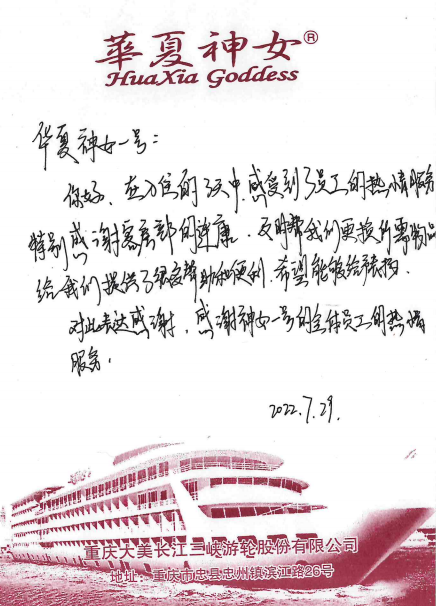 華夏神女®
HuaXia Goddess
华夏神女一号：
你好，在入住的3天中，感受到了员工的热情服务
特别感谢客房部的连康，及时帮我们更换所需物品
给我们提供了很多帮助和便利，希望能够给表扬。
对此表达感谢，感谢神女一号的全体员工的热情
服务。
2022.7.29.
重庆大美长江三峡游轮股份有限公司
地址：重庆市忠县忠州镇滨江路26号